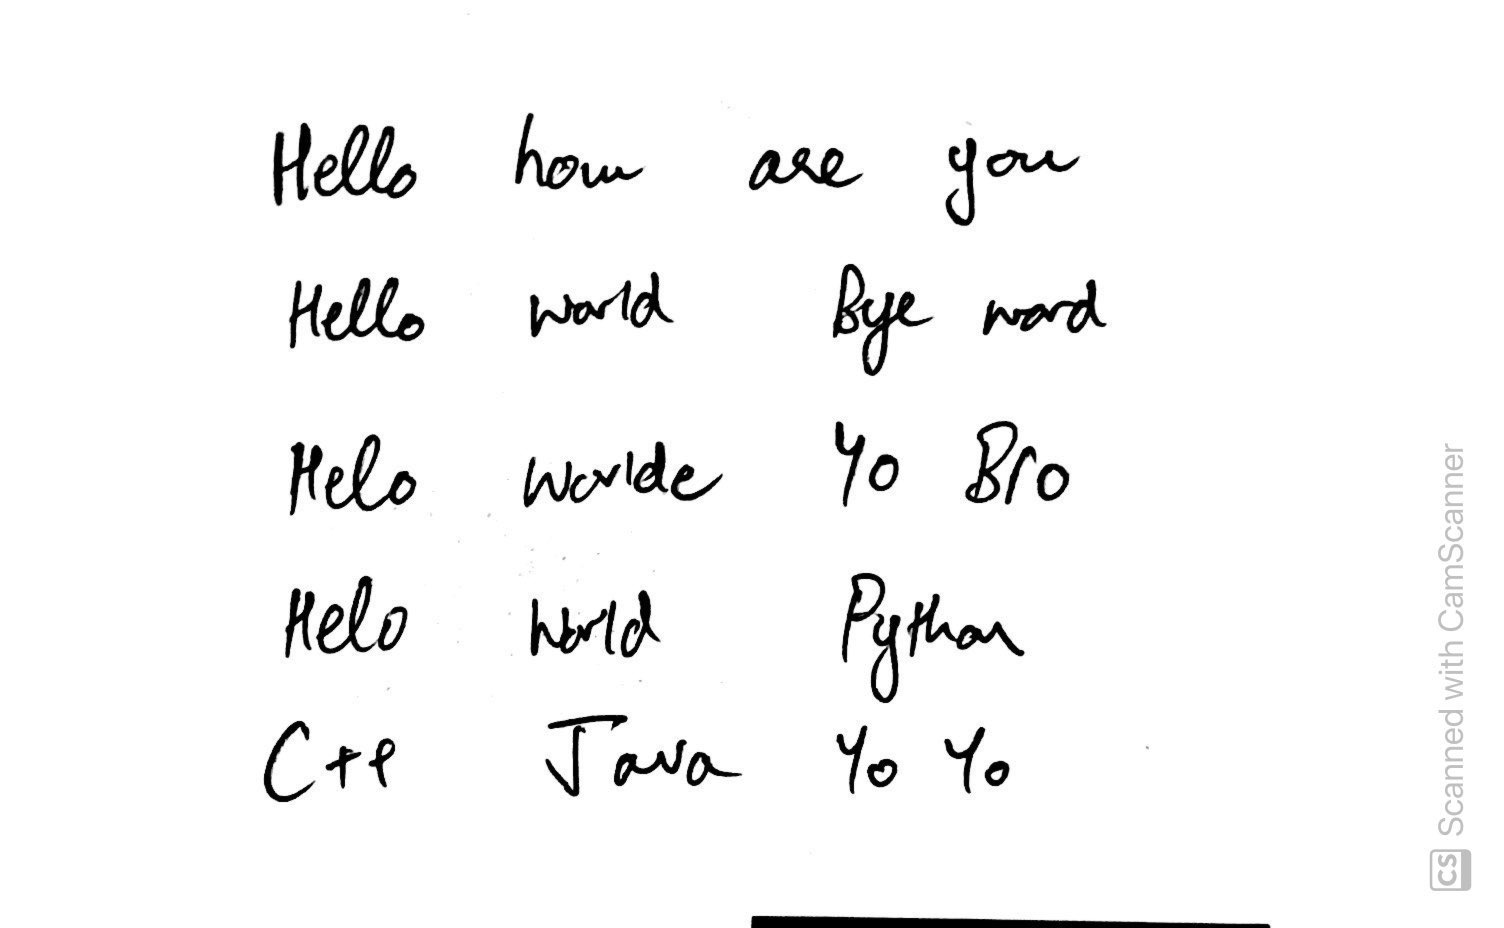 Hello how are you
Hello world Bye word
Helo worlde Yo Bro
Helo world Python
C++ Java Yo Yo
CS Scanned with CamScanner